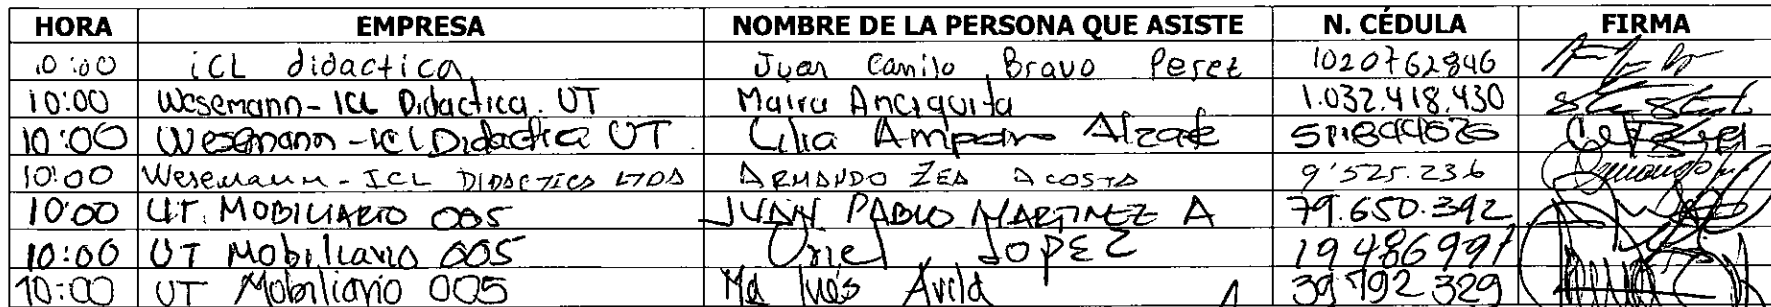 HORA EMPRESA NOMBRE DE LA PERSONA QUE ASISTE N. CÉDULA FIRMA
10:00 iCL didactica Juan Camilo Bravo Perez 1020762846
10:00 Wesemann-ICL Didactica UT Maira Anciquita 1.032.418.430
10:00 Wesemann-ICL Didactica UT Lilia Amparo Alzate
10:00 Wesemann-ICL DIDACTICA LTDA ARMANDO ZEA ACOSTA 9'525.236
10:00 UT. MOBILIARIO 005 JUAN PABLO MARTINEZ A 79.650.392
10:00 UT Mobiliario 005 Oriel LOPEZ 19486997
10:00 UT Mobiliario 005 Ma Inés Avila 39792329